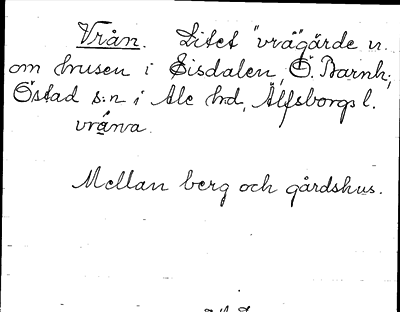 Vrån. Litet "vrå"gärde n.
om husen i Sisdalen, Ö. Barnh.,
Östad s:n i Ale hd, Älfsborgs l.
vrǻna.
Mellan berg och gårdshus.